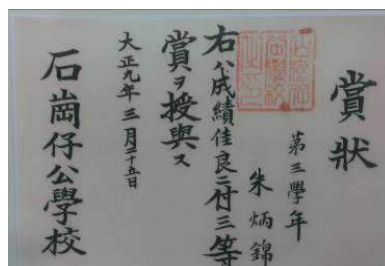 賞狀
第三學年
朱炳錦
右ハ成績佳良ニ付三等
賞ヲ授與ス
大正九年三月二十五日
石崗仔公學校